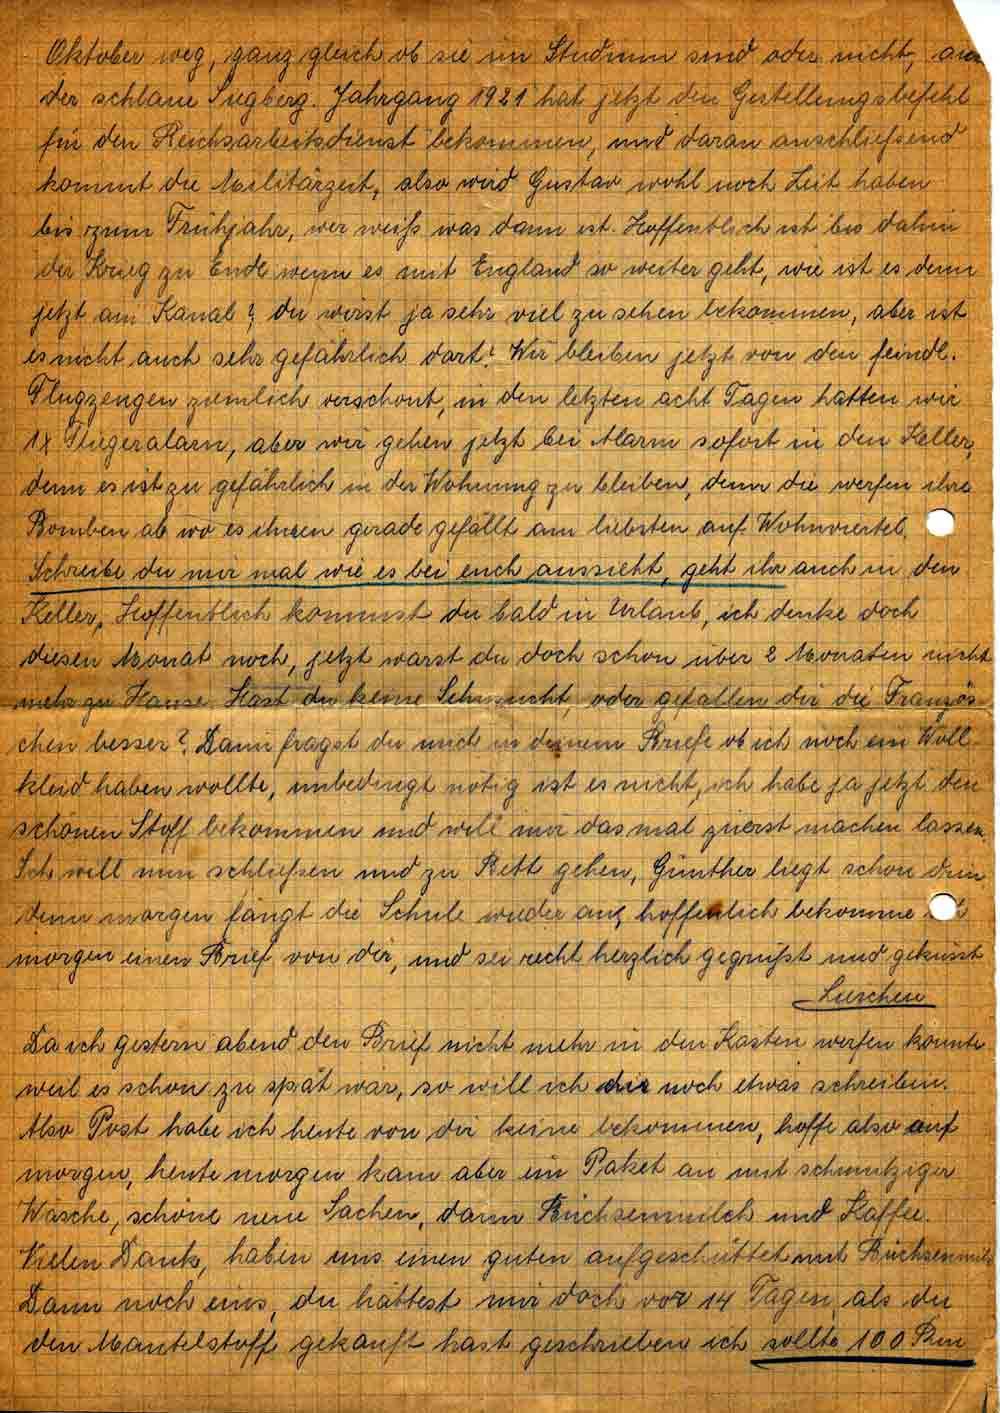 Oktober weg, ganz gleich ob sie im Studium sind oder nicht, auch
der schlaue Siegberg. Jahrgang 1921 hat jetzt den Gestellungsbefehl
für den Reichsarbeitsdienst bekommen, und daran anschließend
kommt die Militärzeit, also wird Gustav wohl noch Zeit haben
bis zum Frühjahr, wer weiß was dann ist. Hoffentlich ist bis dahin
der Krieg zu Ende wenn es mit England so weiter geht, wie ist es denn
jetzt am Kanal? du wirst ja sehr viel zu sehen bekommen, aber ist
es nicht auch sehr gefährlich dort? Wir bleiben jetzt von den feindl.
Flugzeugen ziemlich verschont, in den letzten acht Tagen hatten wir
1x Fliegeralarm, aber wir gehen jetzt bei Alarm sofort in den Keller,
denn es ist zu gefährlich in der Wohnung zu bleiben, denn die werfen ihre
Bomben ab wo es ihnen gerade gefällt am liebsten auf Wohnviertel.
Schreibe du mir mal wie es bei euch aussieht, geht ihr auch in den
Keller, Hoffentlich kommst du bald in Urlaub, ich denke doch
diesen Monat noch, jetzt warst du doch schon über 2 Monaten nicht
mehr zu Hause. Hast du keine Sehnsucht, oder gefallen dir die Französ-
chen besser? Dann fragst du mich in deinem Briefe ob ich noch ein Woll-
kleid haben wollte, unbedingt nötig ist es nicht, ich habe ja jetzt den
schönen Stoff bekommen und will mir das mal zuerst machen lassen.
Ich will nun schließen und zu Bett gehen, Günther liegt schon drin
denn morgen fängt die Schule wieder an, hoffenlich bekomme ich
morgen einen Brief von dir, und sei recht herzlich gegrüßt und geküsst
Lieschen
Da ich gestern abend den Brief nicht mehr in den Kasten werfen konnte
weil es schon zu spät war, so will ich dir noch etwas schreiben.
Also Post habe ich heute von dir keine bekommen, hoffe also auf
morgen, heute morgen kam aber ein Paket an mit schmutziger
Wäsche, schöne neue Sachen, dann Büchsenmilch und Kaffee.
Vielen Dank, haben uns einen guten aufgeschüttet mit Büchsenmilch
Dann noch eins, du hattest mir doch vor 14 Tagen als du
den Mantelstoff gekauft hast geschrieben ich sollte 100 Rm